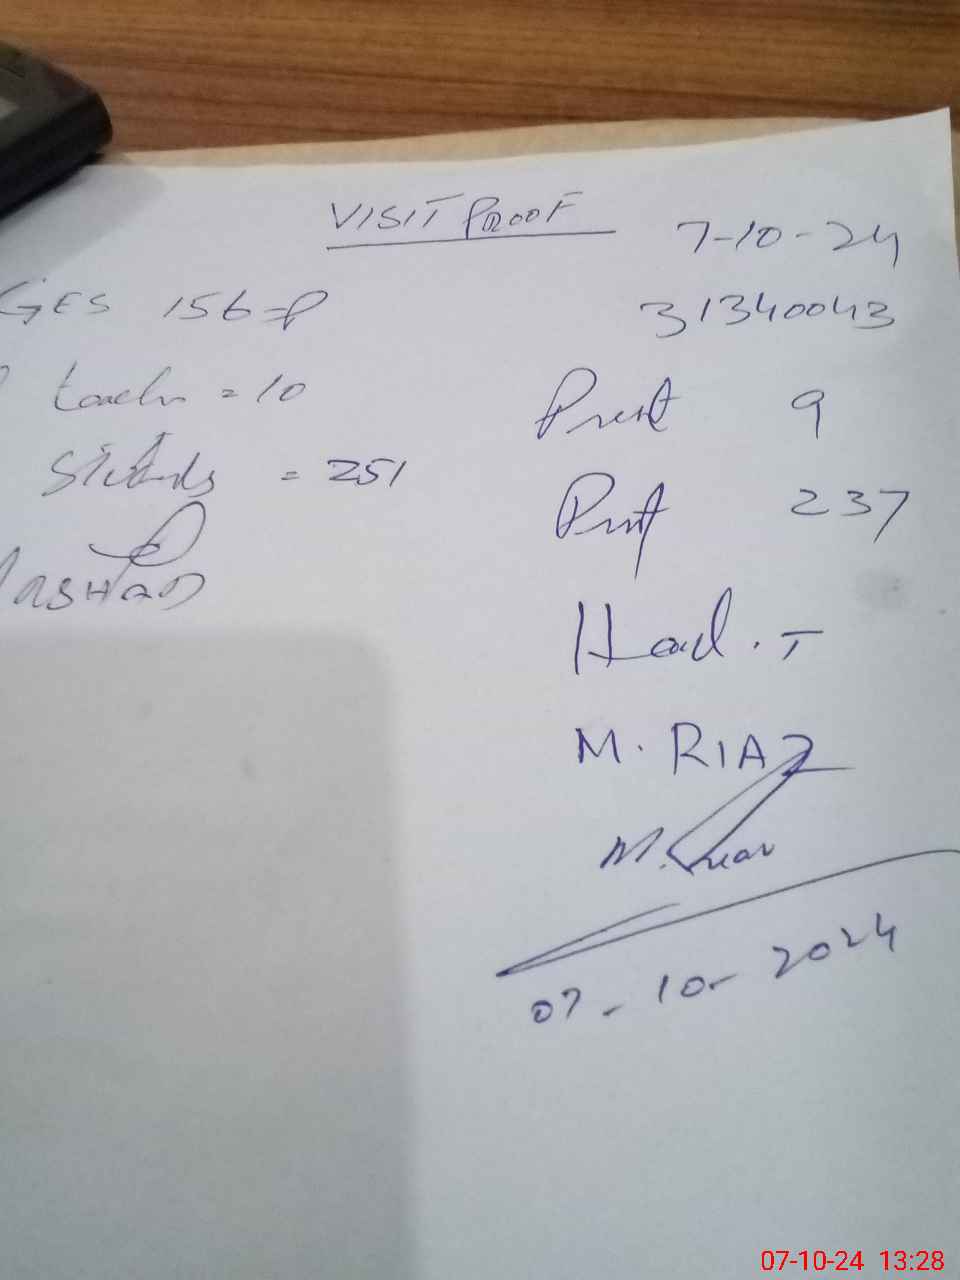 VISIT PROOF
7-10-24
GES 156=P 31340043
teacher = 10 Present 9
Students = 251 Present 237
Head. T
M. RIAZ
07-10-2024
07-10-24 13:28